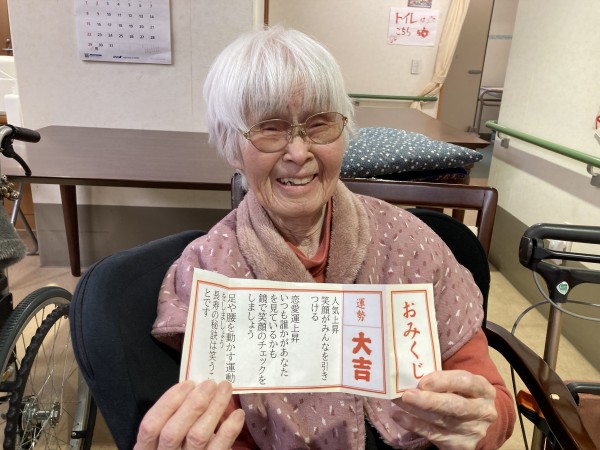 トイレ
こちら
おみくじ
運勢
大吉
人気上昇
笑顔がみんなを引き
つける
恋愛運上昇
いつも誰かがあなた
を見ているかも
鏡で笑顔のチェックを
しましょう
足や腰を動かす運動
をしましょう
長寿の秘訣は笑うこ
とです